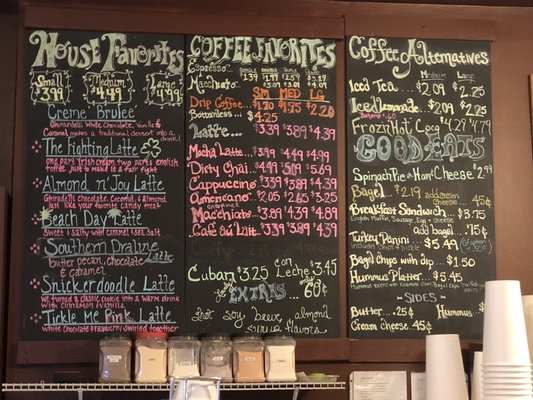 House Favorites
Small Medium Large
$3.99 $4.49 $4.99
Creme Brulee
Ghirardelli White Chocolate, Vanilla &
Caramel makes a traditional dessert into a drink!
The Fighting Latte
one part Irish cream two parts english
toffee just to make it a fair fight
Almond n' Joy Latte
Ghiradelli chocolate, Coconut, & almond
just like your favorite candy treat
Beach Day Latte
Sweet & salty with caramel & sea salt
Southern Praline Latte
butter pecan, chocolate
& caramel
Snickerdoodle Latte
We turned a classic cookie into a warm drink
with cinnamon & vanilla
Tickle Me Pink Latte
white chocolate & raspberry swirled together
COFFEE FAVORITES
Single Double Triple
Espresso
Macchiato
SM MED LG
Drip Coffee $1.70 $1.95 $2.20
Bottomless $4.25
Latte $3.39 $3.89 $4.39
Mocha Latte $3.99 $4.49 $4.99
Dirty Chai $4.49 5.09 $5.69
Cappuccino $3.39 $3.89 $4.39
Americano $2.05 $2.65 $3.25
Macchiato $3.89 $4.39 $4.89
Cafe au Lait $3.39 $3.89 $4.39
Cuban $3.25 Con Leche $3.45
EXTRAS 60¢
shot soy breve almond
syrup flavors
Coffee Alternatives
Medium Large
Iced Tea $2.09 $2.25
Iced Lemonade $2.09 $2.25
Frozn Hot Coco $4.29 $4.79
GOOD EATS
Spinach Pie Ham & Cheese $2.99
Bagel $2.19 add cream cheese 45¢
Breakfast Sandwich $3.75
English Muffin, Sausage, Egg & cheese
add bagel .75¢
Turkey Panini $5.49
Bagel Chips with dip $1.50
Hummus Platter $5.45
SIDES
Butter .25¢ Hummus
Cream Cheese 45¢